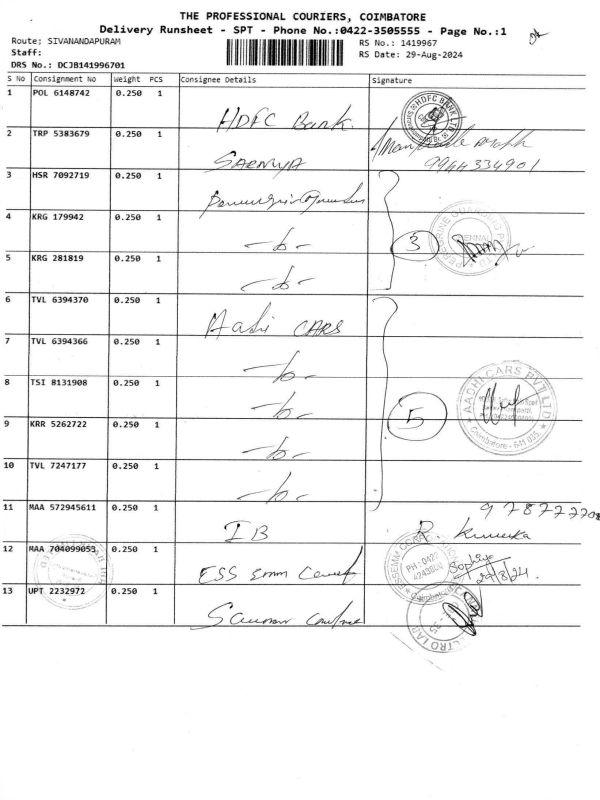 THE PROFESSIONAL COURIERS, COIMBATORE
Delivery Runsheet - SPT - Phone No.:0422-3505555 - Page No.:1
Route: SIVANANDAPURAM
RS No.: 1419967
Staff:
RS Date: 29-Aug-2024
DRS No.: DCJB141996701
S No Consignment No Weight PCS Consignee Details Signature
1 POL 6148742 0.250 1 HDFC Bank.
2 TRP 5383679 0.250 1 SARNYA
9944334901
3 HSR 7092719 0.250 1
4 KRG 179942 0.250 1 -b- 3
5 KRG 281819 0.250 1 -b-
6 TVL 6394370 0.250 1 Aadhi CARS
7 TVL 6394366 0.250 1 -b-
8 TSI 8131908 0.250 1 -b-
AADHI CARS PVT LTD
Coimbatore - 641 035
9 KRR 5262722 0.250 1 -b- 5
10 TVL 7247177 0.250 1 -b-
11 MAA 572945611 0.250 1 IB R
12 MAA 704099053 0.250 1 ESS Emm
PH : 0422
Sophiya
29/8/24.
13 UPT 2232972 0.250 1